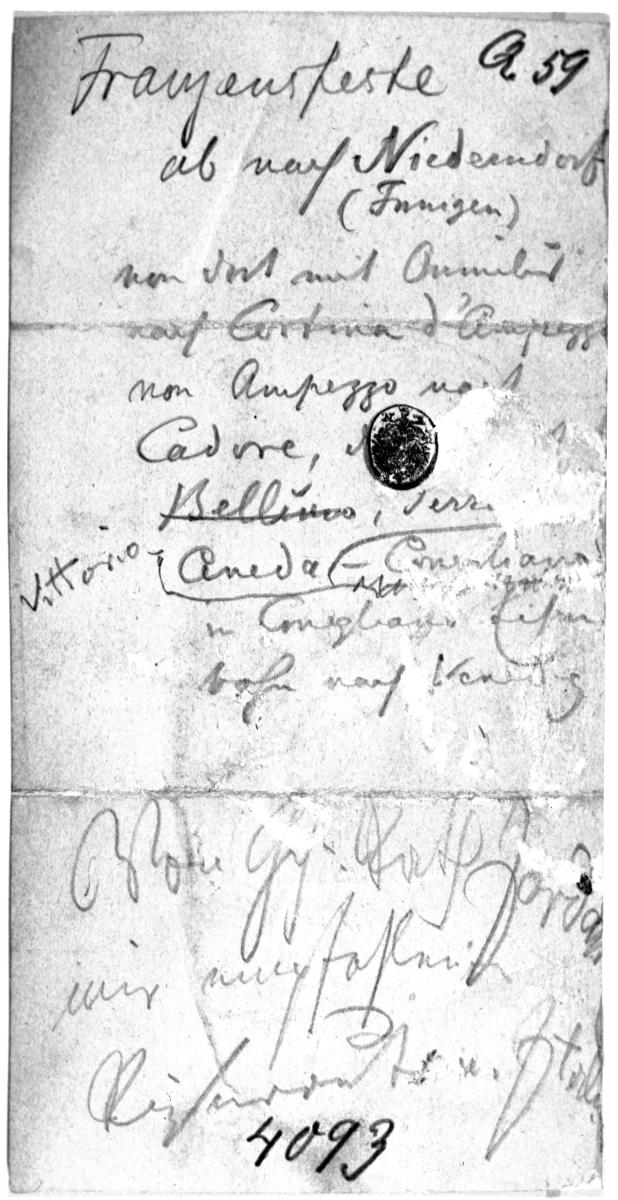 Franzensfeste Q. 59
ab nach Niederndorf
(Innigen)
von dort mit Omnibus
nach Cortina d'Ampezzo
von Ampezzo nach
Cadore,
Belluno, Serra
Vittorio - Ceneda - Conegliano
in Conegliano Eisen
bahn nach Venedig
Von Rath Jordan
mir empfohlene
Reiseroute n. Ital
4093